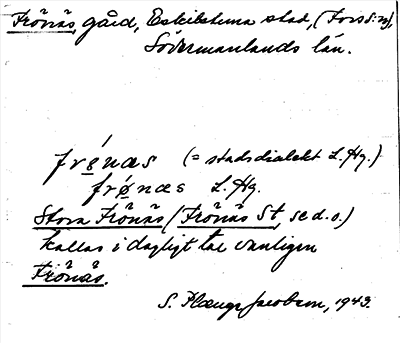 Frönäs, gård, Eskilstuna stad, (Fors s:n),
Södermanlands län.
frønæs (= stadsdialekt L. Hg.)
frǿnæs L. Hg.
Stora Frönäs (Frönäs St, se d. o.)
kallas i dagligt tal vanligen
Frönäs.
S. Plænge Jacobson, 1943.